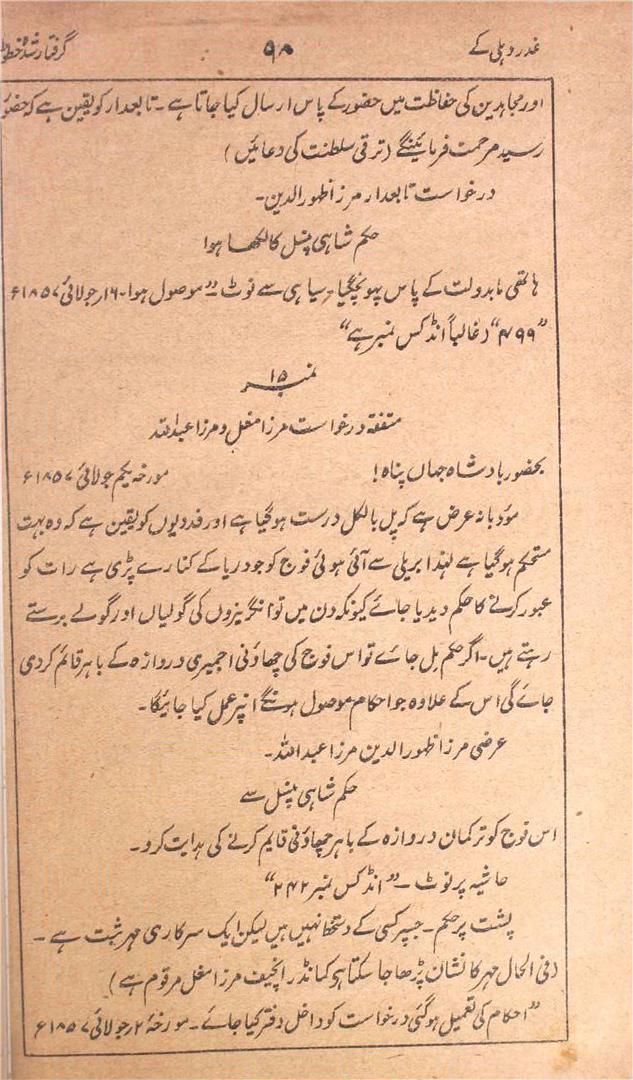 غدر دہلی کے ۹۸ گرفتار شدہ خطوط
اور مجاہدین کی حفاظت میں حضور کے پاس ارسال کیا جاتا ہے۔ تابعدار کو یقین ہے کہ حضور
رسید مرحمت فرمائینگے (ترقی سلطنت کی دعائیں)
درخواست تابعدار مرزا ظہور الدین۔
حکم شاہی پنسل کا لکھا ہوا
ہاتھی مابدولت کے پاس پہونچ گیا۔ سیاہی سے نوٹ۔ "موصول ہوا۔ ۱۶ر جولائی ۱۸۵۷ء
"۴۹۹" (غالباً انڈکس نمبر ہے"
نمبر ۱۵
متفقہ درخواست مرزا مغل و مرزا عبداللہ
بحضور بادشاہ جہاں پناہ! مورخہ یکم جولائی ۱۸۵۷ء
مؤدبانہ عرض ہے کہ پل بالکل درست ہو گیا ہے اور فدویوں کو یقین ہے کہ وہ بہت
مستحکم ہو گیا ہے لہٰذا بریلی سے آئی ہوئی فوج کو جو دریا کے کنارے پڑی ہے رات کو
عبور کرنے کا حکم دیدیا جائے کیونکہ دن میں تو انگریزوں کی گولیاں اور گولے برستے
رہتے ہیں۔ اگر حکم مل جائے تو اس فوج کی چھاؤنی اجمیری دروازہ کے باہر قائم کردی
جائے گی اس کے علاوہ جو احکام موصول ہونگے انپر عمل کیا جائیگا۔
عرضی مرزا ظہور الدین مرزا عبداللہ۔
حکم شاہی پنسل سے
اس فوج کو ترکمان دروازہ کے باہر چھاؤنی قایم کرنے کی ہدایت کرو۔
حاشیہ پر نوٹ۔ "انڈکس نمبر ۲۴۲"
پشت پر حکم۔ جسپر کسی کے دستخط نہیں ہیں لیکن ایک سرکاری مہر ثبت ہے۔
(فی الحال مہر کا نشان پڑھا جا سکتا ہی کمانڈر انچیف مرزا مغل مرقوم ہے)
"احکام کی تعمیل ہو گئی درخواست کو داخل دفتر کیا جائے۔ مورخہ ۲ر جولائی ۱۸۵۷ء